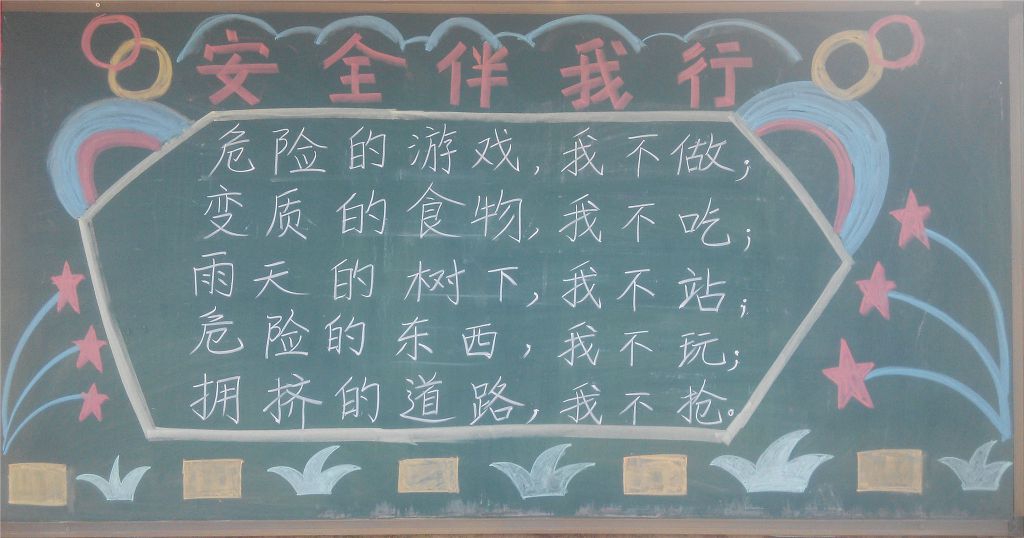 安全伴我行
危险的游戏,我不做;
变质的食物,我不吃;
雨天的树下,我不站;
危险的东西,我不玩;
拥挤的道路,我不抢。